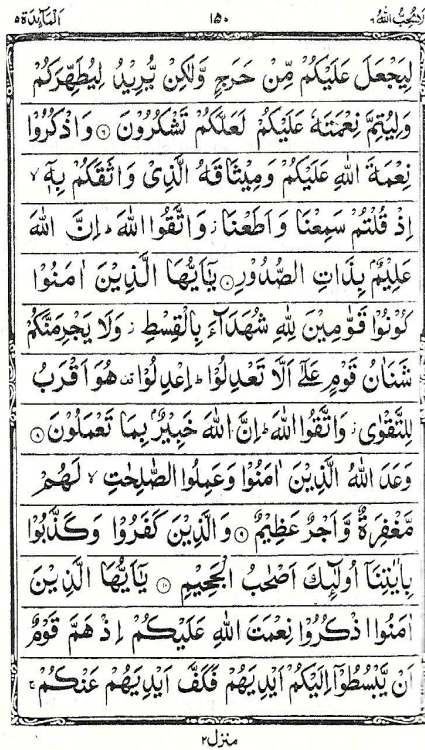 لا یحب الله ٦ ١٥٠ المآئدة ٥
لِیَجْعَلَ عَلَیْكُمْ مِّنْ حَرَجٍ وَّلٰكِنْ یُّرِیْدُ لِیُطَهِّرَكُمْ
وَلِیُتِمَّ نِعْمَتَهٗ عَلَیْكُمْ لَعَلَّكُمْ تَشْكُرُوْنَ ۝٦ وَاذْكُرُوْا
نِعْمَةَ اللّٰهِ عَلَیْكُمْ وَمِیْثَاقَهُ الَّذِیْ وَاثَقَكُمْ بِهٖۤ ۙ
اِذْ قُلْتُمْ سَمِعْنَا وَاَطَعْنَا ؗ وَاتَّقُوا اللّٰهَ ؕ اِنَّ اللّٰهَ
عَلِیْمٌۢ بِذَاتِ الصُّدُوْرِ ۝ یٰۤاَیُّهَا الَّذِیْنَ اٰمَنُوْا
كُوْنُوْا قَوّٰمِیْنَ لِلّٰهِ شُهَدَآءَ بِالْقِسْطِ ؗ وَلَا یَجْرِمَنَّكُمْ
شَنَاٰنُ قَوْمٍ عَلٰۤی اَلَّا تَعْدِلُوْا ؕ اِعْدِلُوْا ۫ هُوَ اَقْرَبُ
لِلتَّقْوٰی ؗ وَاتَّقُوا اللّٰهَ ؕ اِنَّ اللّٰهَ خَبِیْرٌۢ بِمَا تَعْمَلُوْنَ ۝٨
وَعَدَ اللّٰهُ الَّذِیْنَ اٰمَنُوْا وَعَمِلُوا الصّٰلِحٰتِ ۙ لَهُمْ
مَّغْفِرَةٌ وَّاَجْرٌ عَظِیْمٌ ۝٩ وَالَّذِیْنَ كَفَرُوْا وَكَذَّبُوْا
بِاٰیٰتِنَاۤ اُولٰٓىِٕكَ اَصْحٰبُ الْجَحِیْمِ ۝١٠ یٰۤاَیُّهَا الَّذِیْنَ
اٰمَنُوا اذْكُرُوْا نِعْمَتَ اللّٰهِ عَلَیْكُمْ اِذْ هَمَّ قَوْمٌ
اَنْ یَّبْسُطُوْۤا اِلَیْكُمْ اَیْدِیَهُمْ فَكَفَّ اَیْدِیَهُمْ عَنْكُمْ ۚ
منزل ٢